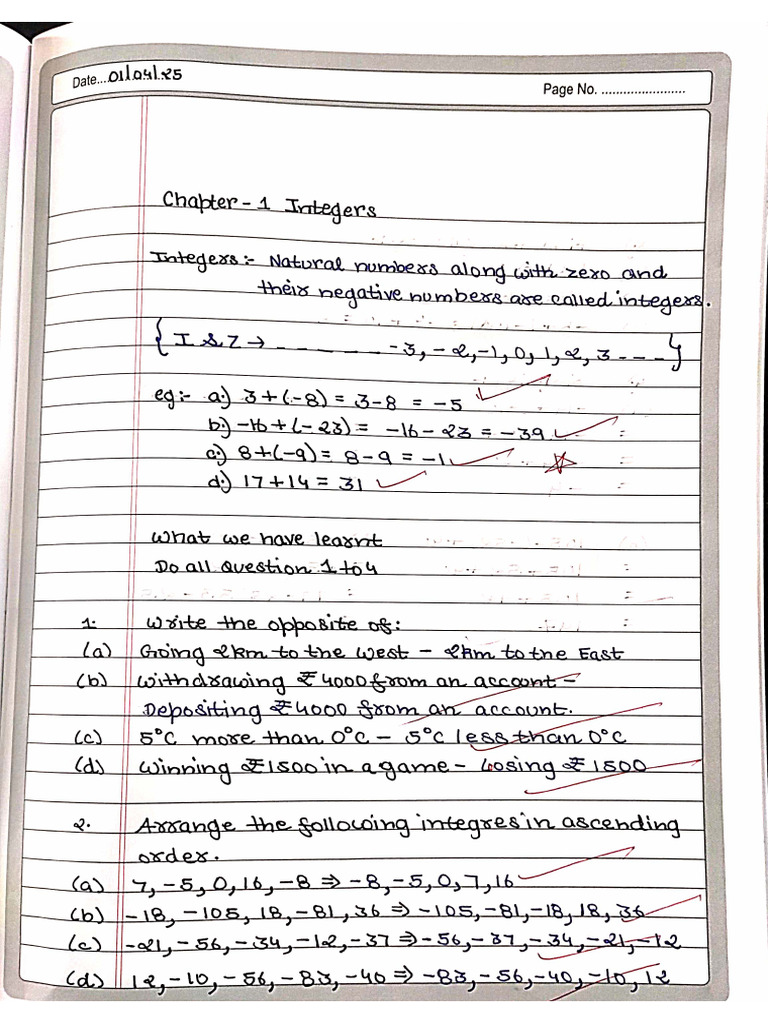 Date...01/04/25
Page No. .......................
Chapter - 1 Integers
Integers :- Natural numbers along with zero and
their negative numbers are called integers.
{ I & Z → _ _ _ _ _ _ -3, -2, -1, 0, 1, 2, 3 _ _ _ }
eg:- a.) 3+(-8) = 3-8 = -5
b.) -16+(-23) = -16-23 = -39
c.) 8+(-9) = 8-9 = -1
d.) 17+14 = 31
What we have learnt
Do all Question 1 to 4
1. Write the opposite of:
(a) Going 2km to the West - 2km to the East
(b) Withdrawing ₹4000 from an account -
Depositing ₹4000 from an account.
(c) 5°C more than 0°C - 5°C less than 0°C
(d) Winning ₹1500 in a game - Losing ₹1500
2. Arrange the following integres in ascending
order.
(a) 7, -5, 0, 16, -8 ⇒ -8, -5, 0, 7, 16
(b) -18, -105, 18, -81, 36 ⇒ -105, -81, -18, 18, 36
(c) -21, -56, -34, -12, -37 ⇒ -56, -37, -34, -21, -12
(d) 12, -10, -56, -83, -40 ⇒ -83, -56, -40, -10, 12